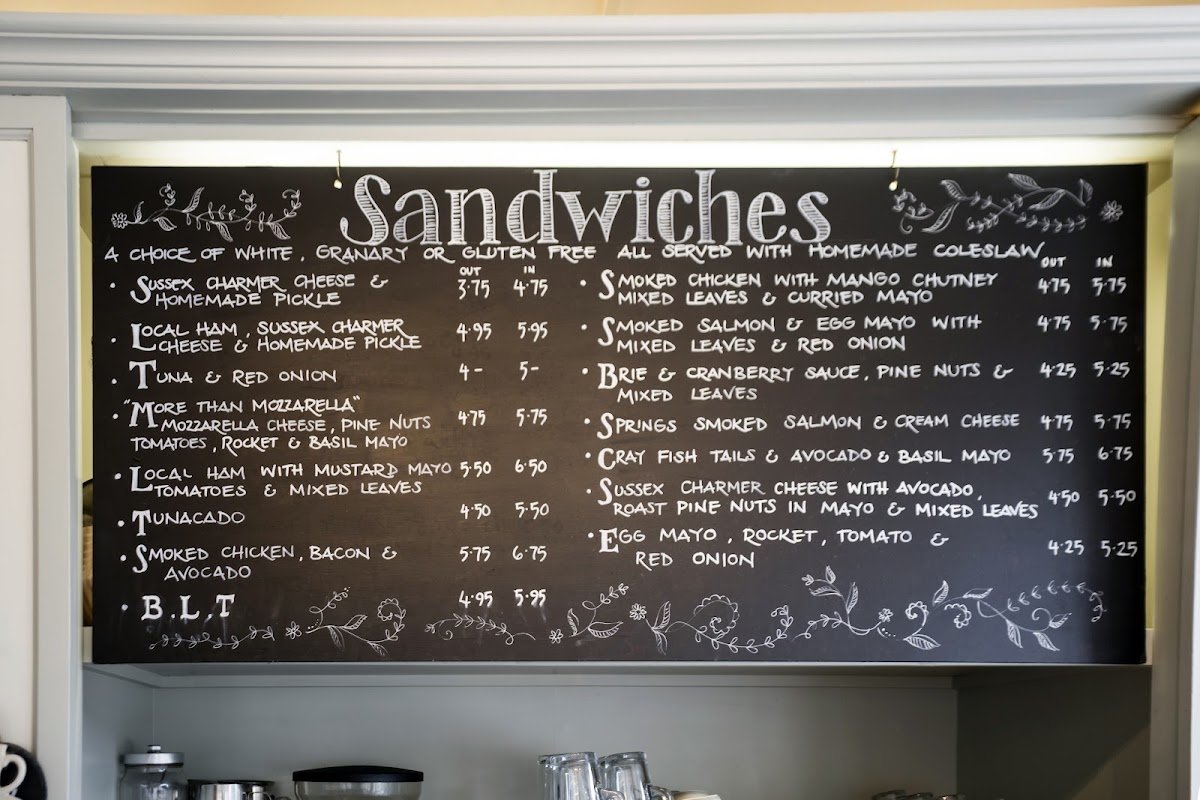 Sandwiches
A CHOICE OF WHITE, GRANARY OR GLUTEN FREE ALL SERVED WITH HOMEMADE COLESLAW
OUT IN
• SUSSEX CHARMER CHEESE & 3.75 4.75
HOMEMADE PICKLE
• LOCAL HAM, SUSSEX CHARMER 4.95 5.95
CHEESE & HOMEMADE PICKLE
• TUNA & RED ONION 4- 5-
• "MORE THAN MOZZARELLA"
MOZZARELLA CHEESE, PINE NUTS 4.75 5.75
TOMATOES, ROCKET & BASIL MAYO
• LOCAL HAM WITH MUSTARD MAYO 5.50 6.50
TOMATOES & MIXED LEAVES
• TUNACADO 4.50 5.50
• SMOKED CHICKEN, BACON & 5.75 6.75
AVOCADO
• B.L.T 4.95 5.95
OUT IN
• SMOKED CHICKEN WITH MANGO CHUTNEY 4.75 5.75
MIXED LEAVES & CURRIED MAYO
• SMOKED SALMON & EGG MAYO WITH 4.75 5.75
MIXED LEAVES & RED ONION
• BRIE & CRANBERRY SAUCE, PINE NUTS & 4.25 5.25
MIXED LEAVES
• SPRINGS SMOKED SALMON & CREAM CHEESE 4.75 5.75
• CRAY FISH TAILS & AVOCADO & BASIL MAYO 5.75 6.75
• SUSSEX CHARMER CHEESE WITH AVOCADO,
ROAST PINE NUTS IN MAYO & MIXED LEAVES 4.50 5.50
• EGG MAYO, ROCKET, TOMATO & 4.25 5.25
RED ONION